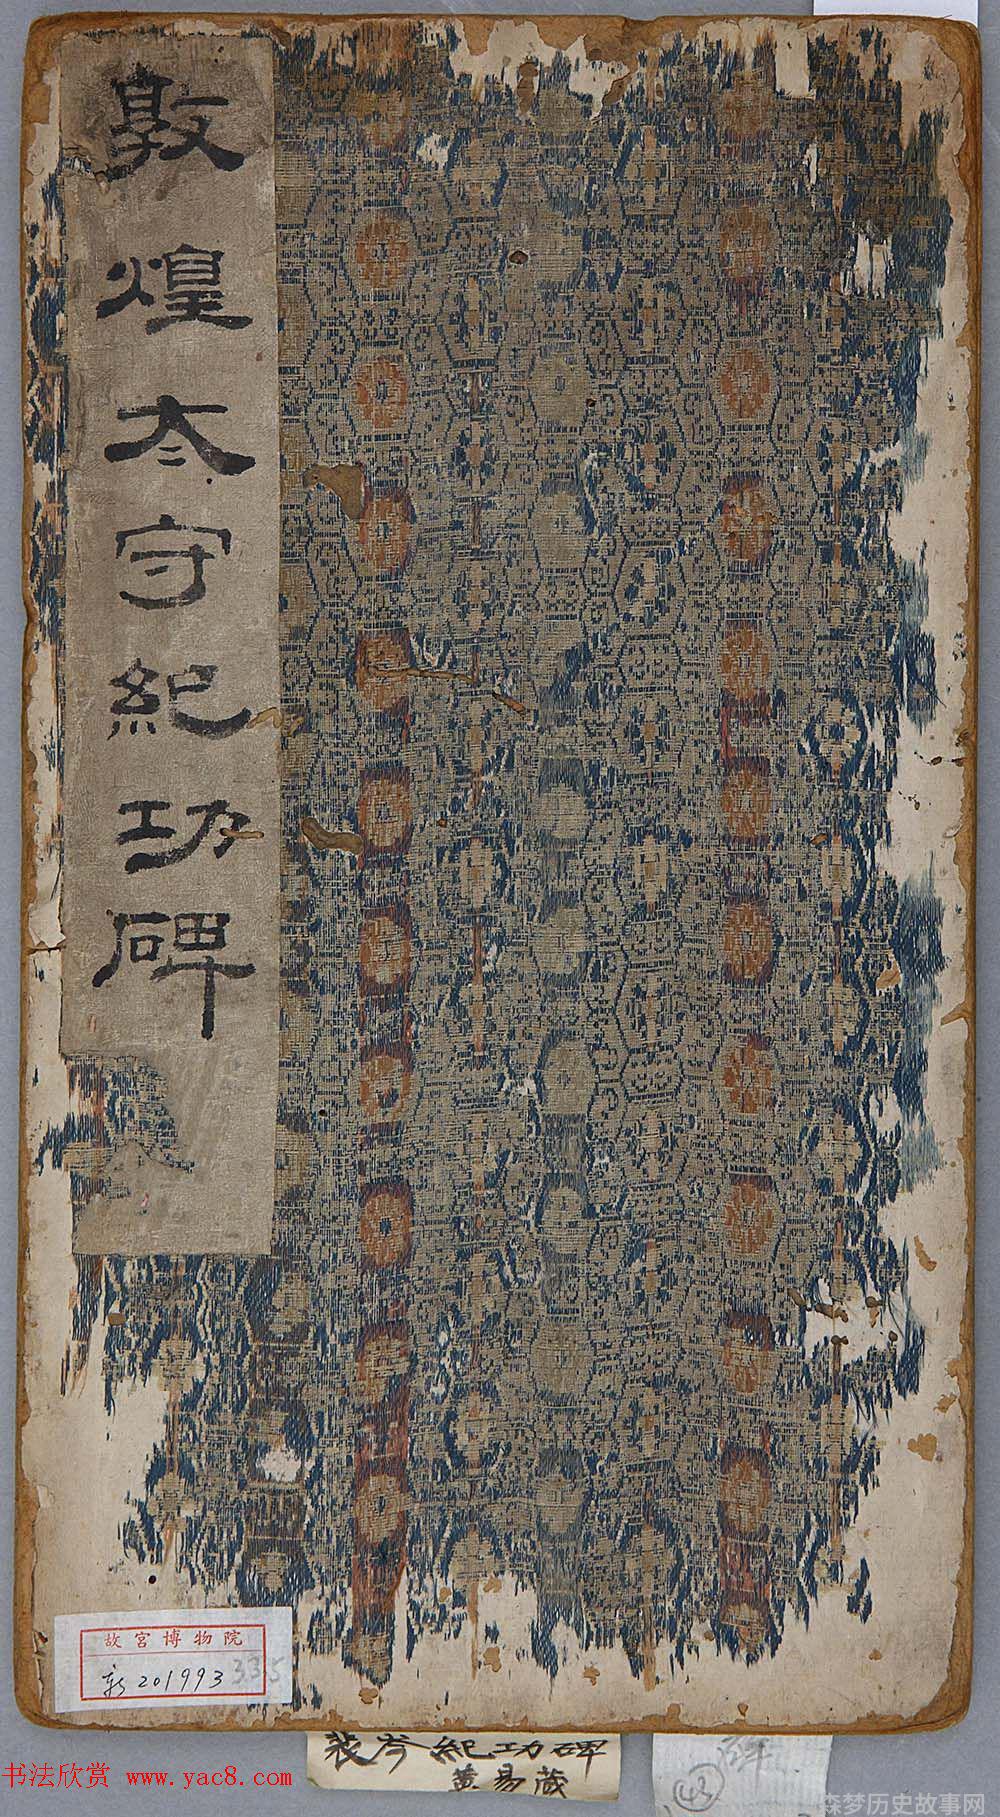 敦煌太守紀功碑
故宮博物院
新201993
335
裴岑紀功碑
黃易藏
43
书法欣赏 www.yac8.com
森梦历史故事网